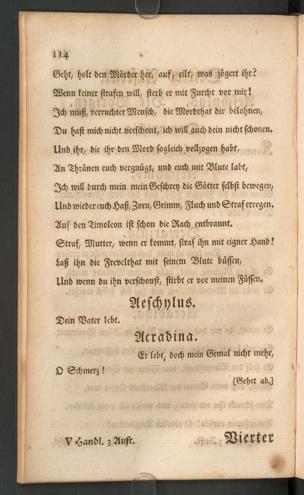 114
Geht, holt den Mörder her, auf, eilt, was zögert ihr?
Wenn keiner strafen will, sterb er mit Furcht vor mir!
Ich muß, verruchter Mensch, die Mordthat dir belohnen,
Du hast mich nicht verschont, ich will auch dein nicht schonen.
Und ihr, die ihr den Mord sogleich vollzogen habt,
An Thränen euch vergnügt, und euch mit Blute labt,
Ich will durch mein mein Geschrey die Götter selbst bewegen,
Und wieder euch Haß, Zorn, Grimm, Fluch und Straf erregen.
Auf den Timoleon ist schon die Rach entbrannt.
Straf, Mutter, wenn er kommt, straf ihn mit eigner Hand!
Laß ihn die Frevelthat mit seinem Blute büssen,
Und wenn du ihn verschonst, stirbt er vor meinen Füssen.
Aeschylus.
Dein Vater lebt.
Acradina.
Er lebt, doch mein Gemal nicht mehr,
O Schmerz!
[Gehet ab.]
V Handl. 3 Auft.
Vierter